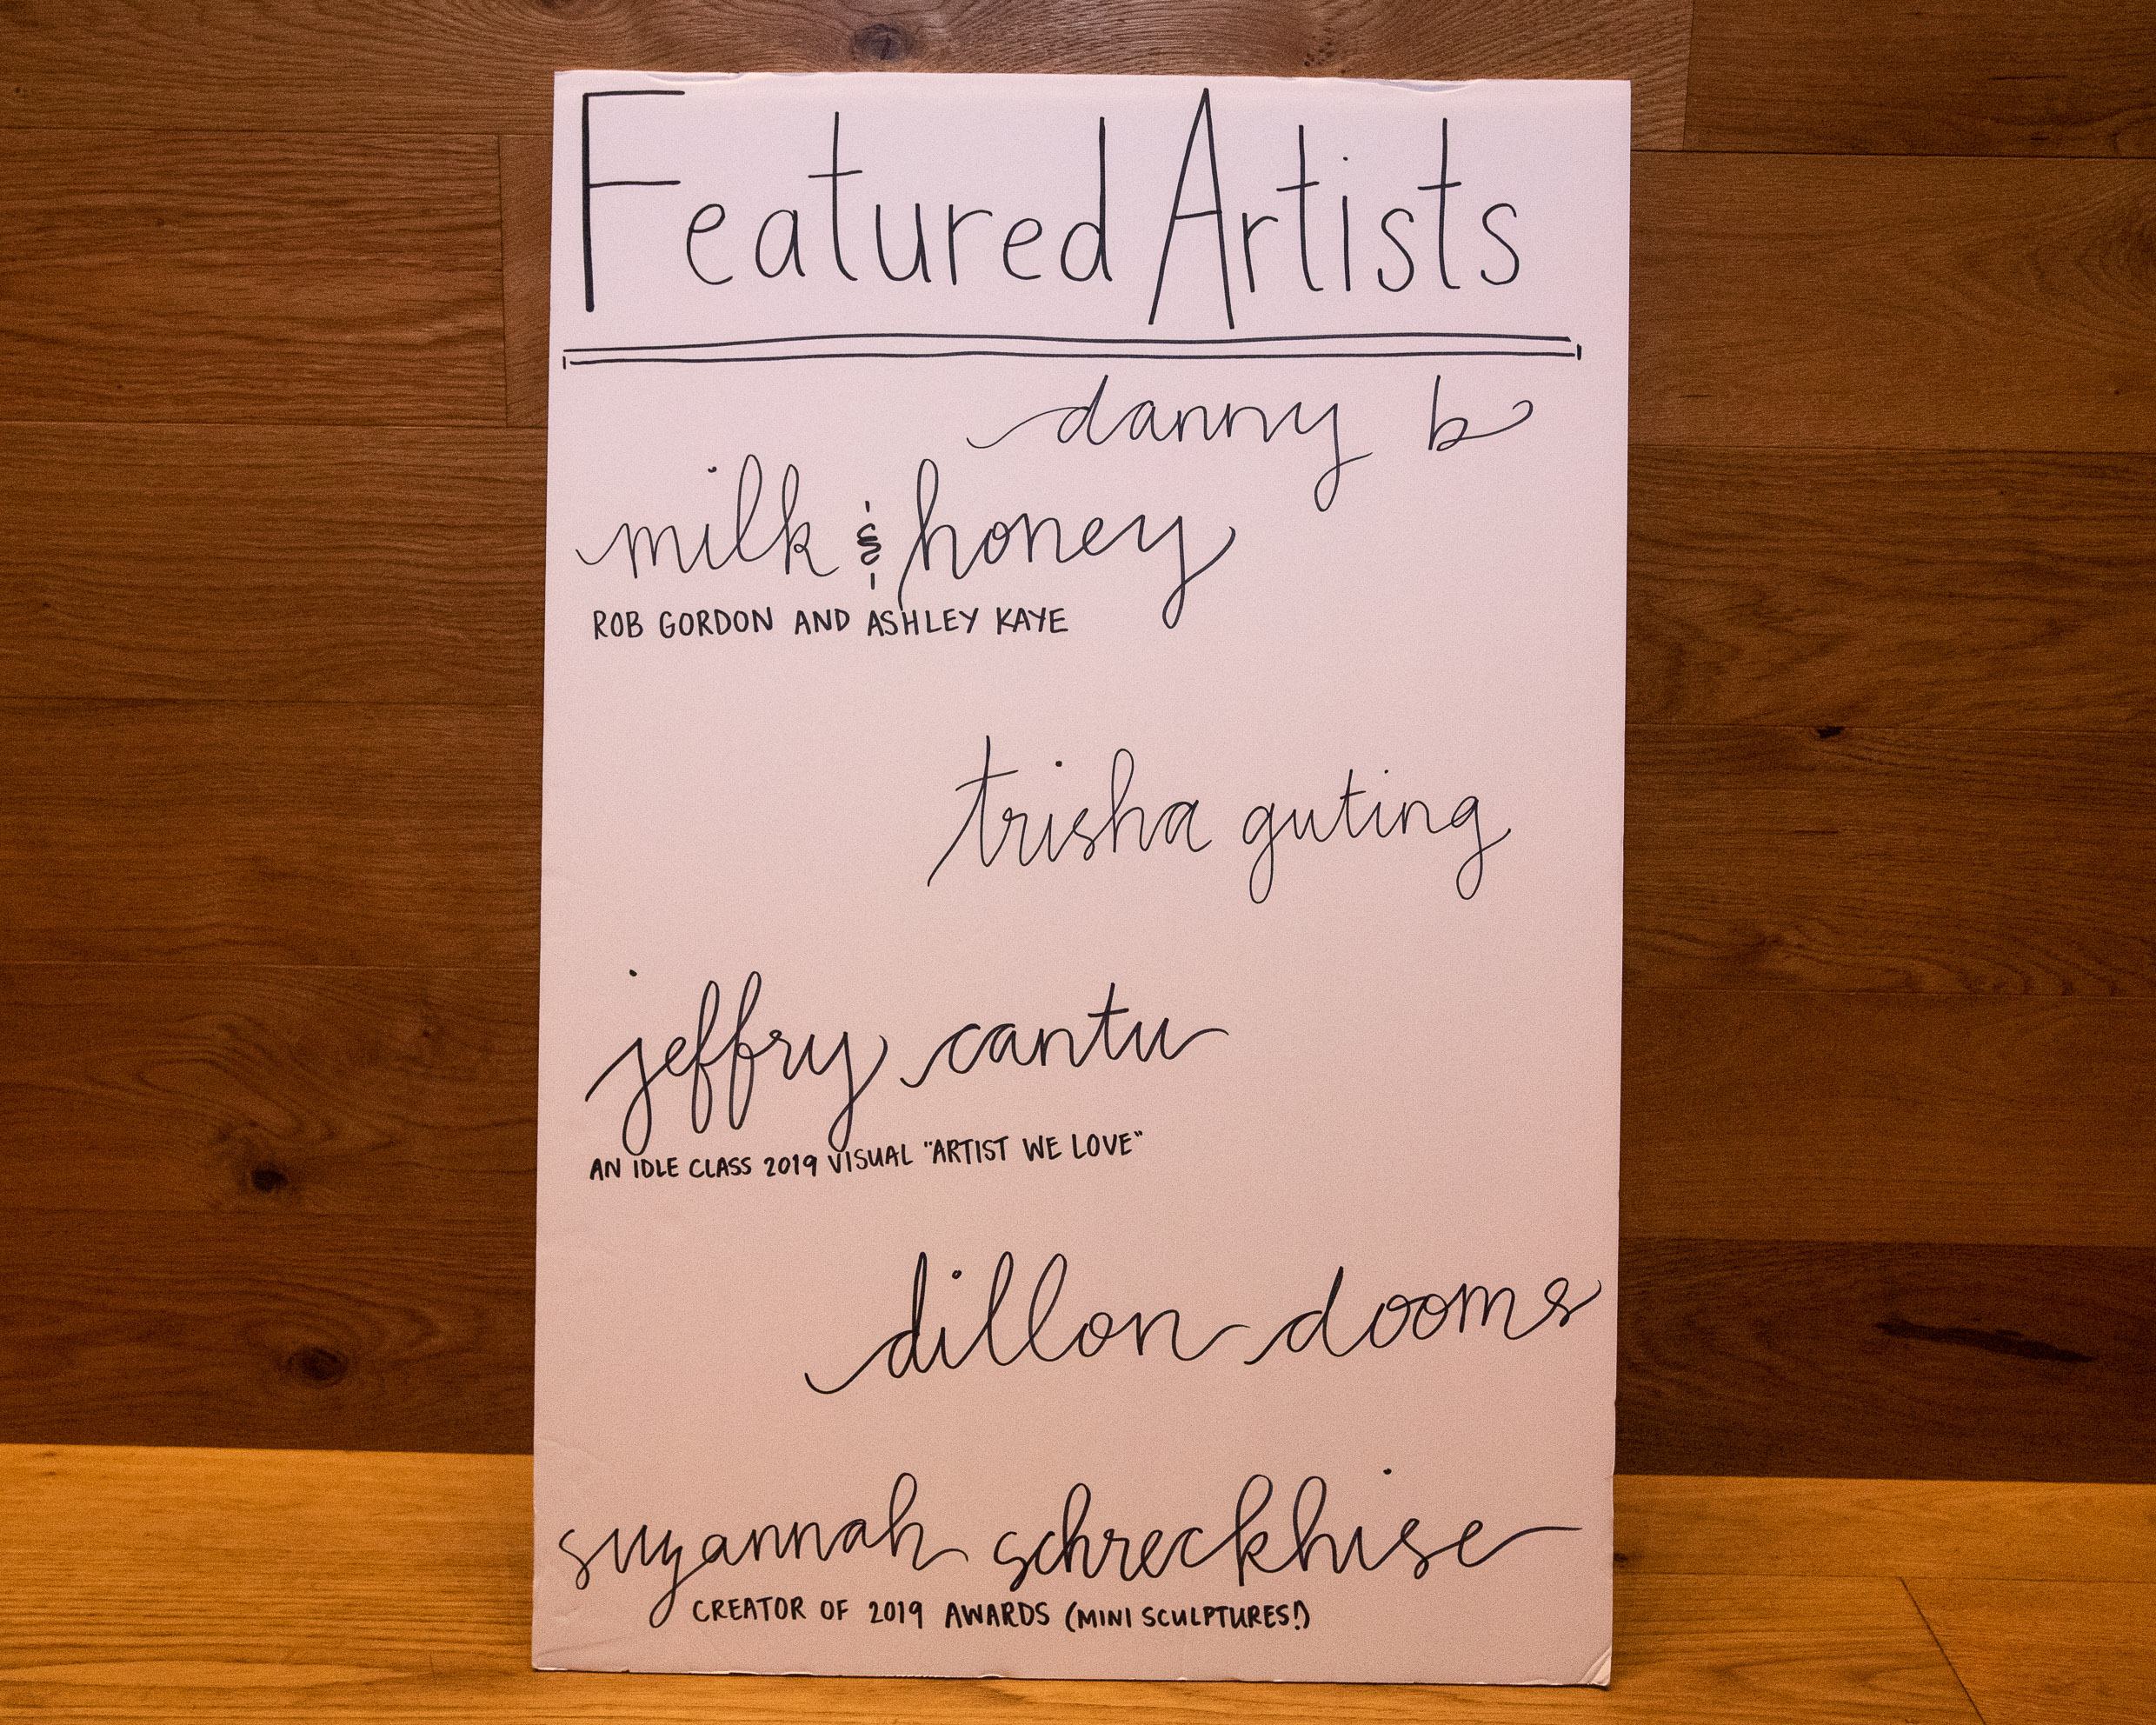 Featured Artists
danny b
milk & honey
ROB GORDON AND ASHLEY KAYE
trisha guting
jeffry cantu
AN IDLE CLASS 2019 VISUAL "ARTIST WE LOVE"
dillon dooms
suzannah schreckhise
CREATOR OF 2019 AWARDS (MINI SCULPTURES!)